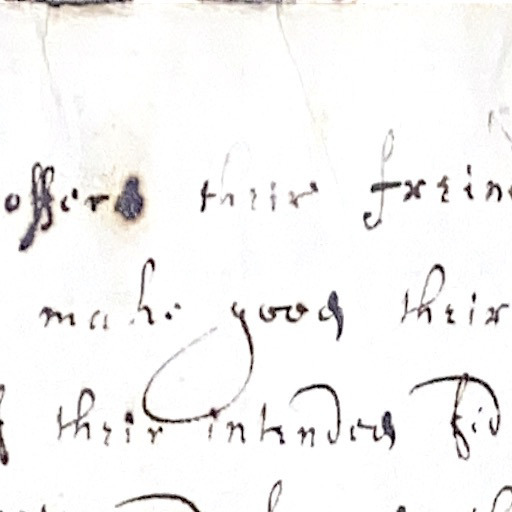 offers their frein
make good their
their intended